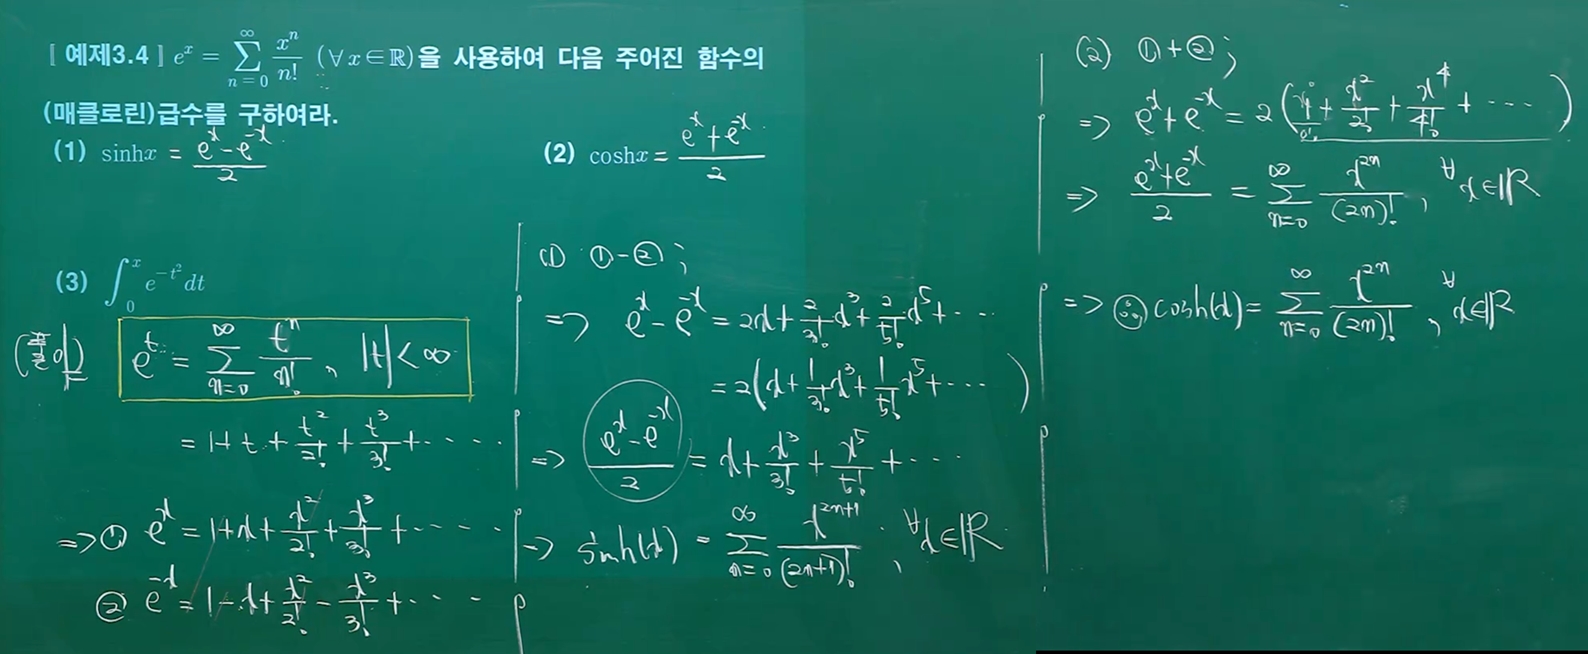 [ 예제3.4 ] e^x = ∑_{n=0}^{∞} x^n/n! (∀x∈ℝ)을 사용하여 다음 주어진 함수의
(매클로린)급수를 구하여라.
(1) sinhx = (e^x - e^{-x})/2
(2) coshx = (e^x + e^{-x})/2
(3) ∫_0^x e^{-t^2} dt
(풀이) e^t = ∑_{n=0}^{∞} t^n/n! , |t| < ∞
= 1 + t + t^2/2! + t^3/3! + ·····
=> ① e^x = 1 + x + x^2/2! + x^3/3! + ·····
② e^{-x} = 1 - x + x^2/2! - x^3/3! + ·····
(1) ① - ② ;
=> e^x - e^{-x} = 2x + 2/3! x^3 + 2/5! x^5 + ···
= 2(x + 1/3! x^3 + 1/5! x^5 + ··· )
=> (e^x - e^{-x})/2 = x + x^3/3! + x^5/5! + ···
-> sinh(x) = ∑_{n=0}^{∞} x^{2n+1}/(2n+1)! , ∀x∈ℝ
(2) ① + ② ;
=> e^x + e^{-x} = 2( x^0/0! + x^2/2! + x^4/4! + ··· )
=> (e^x + e^{-x})/2 = ∑_{n=0}^{∞} x^{2n}/(2n)! , ∀x∈ℝ
=> ∴ cosh(x) = ∑_{n=0}^{∞} x^{2n}/(2n)! , ∀x∈ℝ